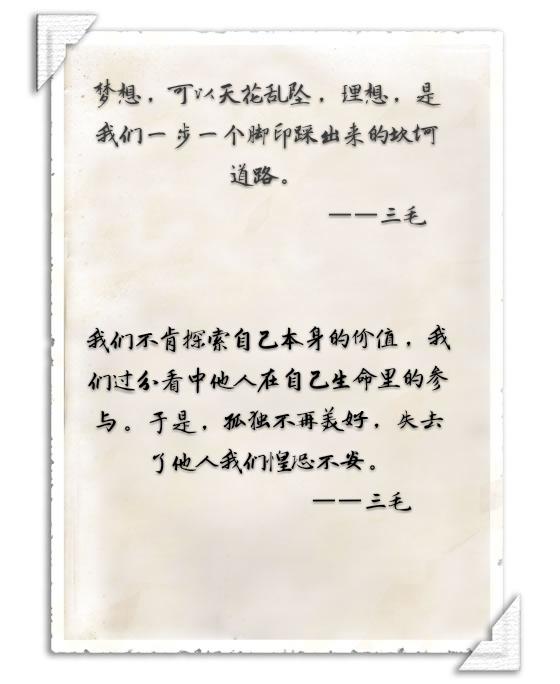 梦想，可以天花乱坠，理想，是
我们一步一个脚印踩出来的坎坷
道路。
——三毛
我们不肯探索自己本身的价值，我
们过分看中他人在自己生命里的参
与。于是，孤独不再美好，失去
了他人我们惶恐不安。
——三毛